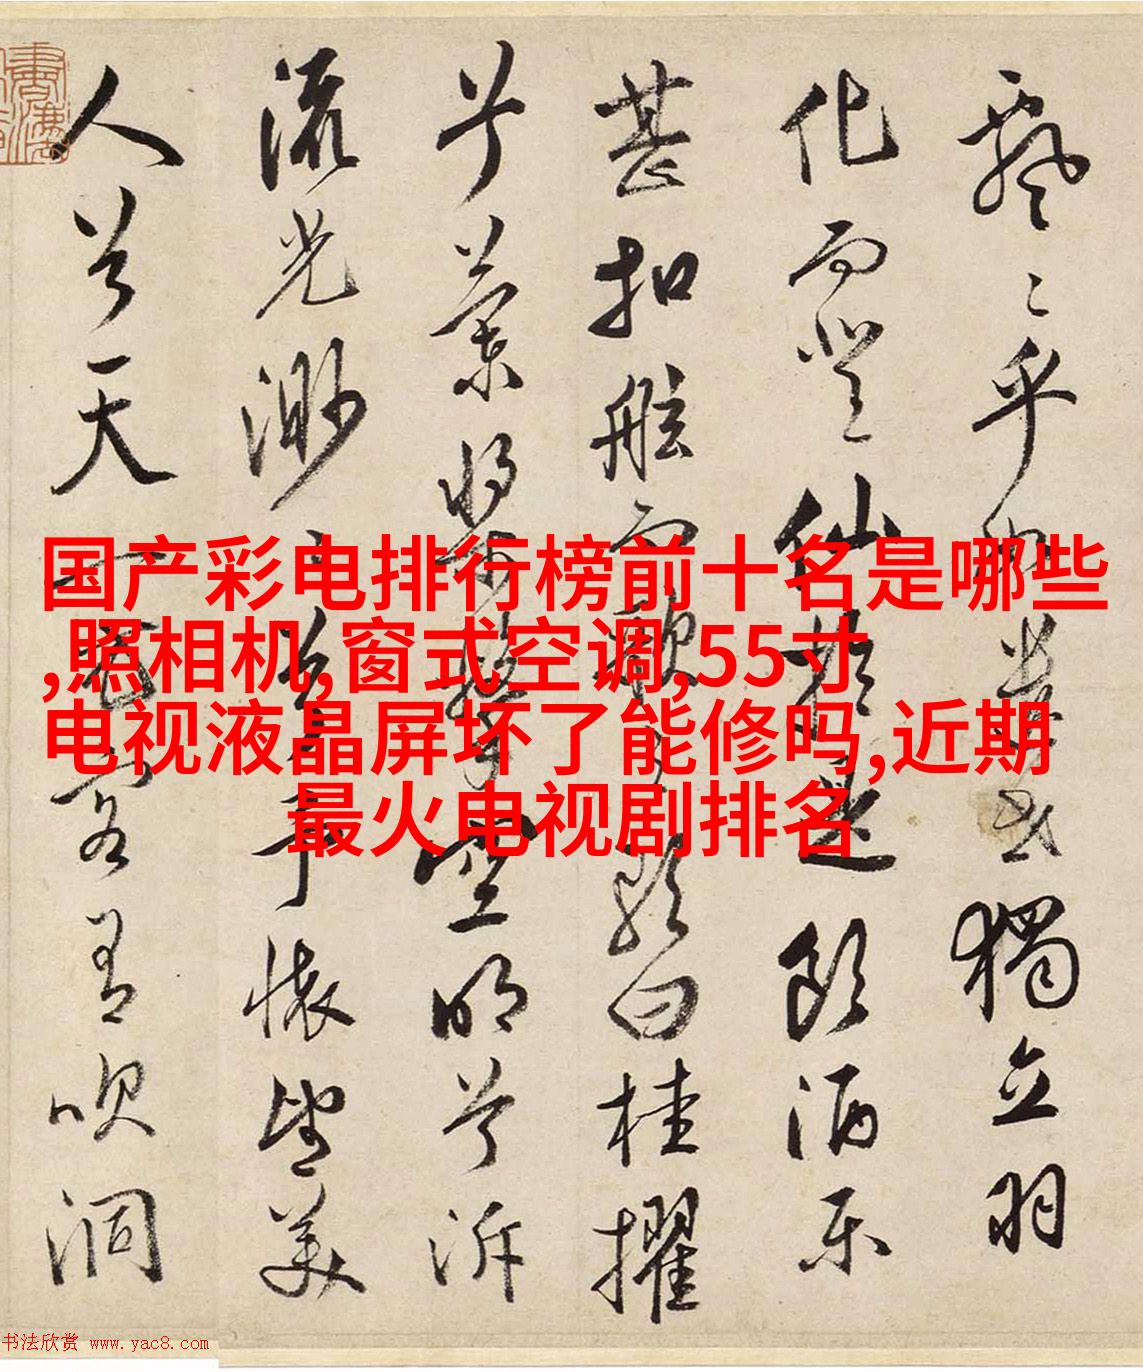 飄〻乎如遺世獨立羽
化而登仙於是飲酒樂
甚扣舷而歌之歌曰桂擢
兮蘭槳擊空明兮泝
流光渺〻兮予懷望美
人兮天一方客有吹洞
国产彩电排行榜前十名是哪些
,照相机,窗式空调,55寸
电视液晶屏坏了能修吗,近期
最火电视剧排名
书法欣赏 www.yac8.com